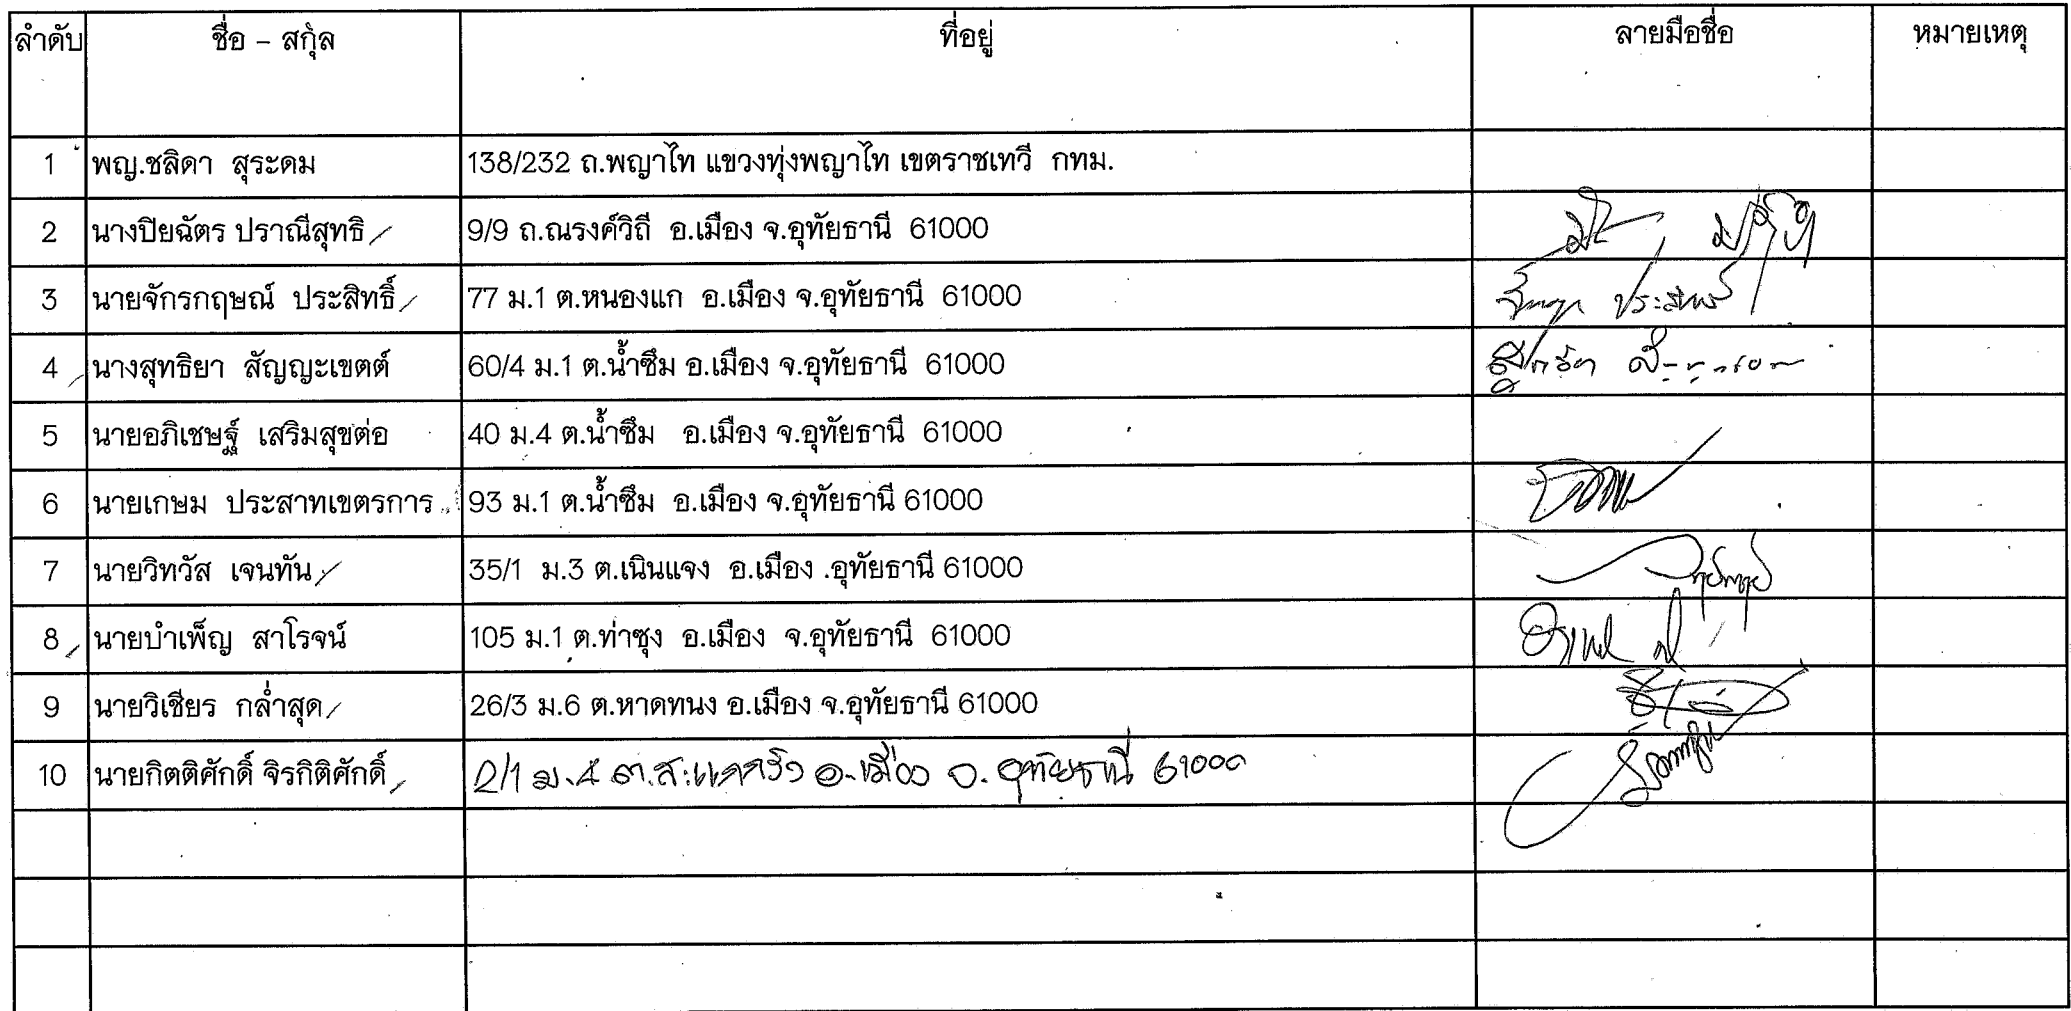 ลำดับ ชื่อ - สกุล ที่อยู่ ลายมือชื่อ หมายเหตุ
1 พญ.ชลิดา สุระดม 138/232 ถ.พญาไท แขวงทุ่งพญาไท เขตราชเทวี กทม.
2 นางปิยฉัตร ปราณีสุทธิ 9/9 ถ.ณรงค์วิถี อ.เมือง จ.อุทัยธานี 61000
3 นายจักรกฤษณ์ ประสิทธิ์ 77 ม.1 ต.หนองแก อ.เมือง จ.อุทัยธานี 61000
4 นางสุทธิยา สัญญะเขตต์ 60/4 ม.1 ต.น้ำซึม อ.เมือง จ.อุทัยธานี 61000
5 นายอภิเชษฐ์ เสริมสุขต่อ 40 ม.4 ต.น้ำซึม อ.เมือง จ.อุทัยธานี 61000
6 นายเกษม ประสาทเขตรการ 93 ม.1 ต.น้ำซึม อ.เมือง จ.อุทัยธานี 61000
7 นายวิทวัส เจนทัน 35/1 ม.3 ต.เนินแจง อ.เมือง .อุทัยธานี 61000
8 นายบำเพ็ญ สาโรจน์ 105 ม.1 ต.ท่าซุง อ.เมือง จ.อุทัยธานี 61000
9 นายวิเชียร กล่ำสุด 26/3 ม.6 ต.หาดทนง อ.เมือง จ.อุทัยธานี 61000
10 นายกิตติศักดิ์ จิรกิติศักดิ์ 2/1 ม.4 ต.สะแกกรัง อ.เมือง จ.อุทัยธานี 61000